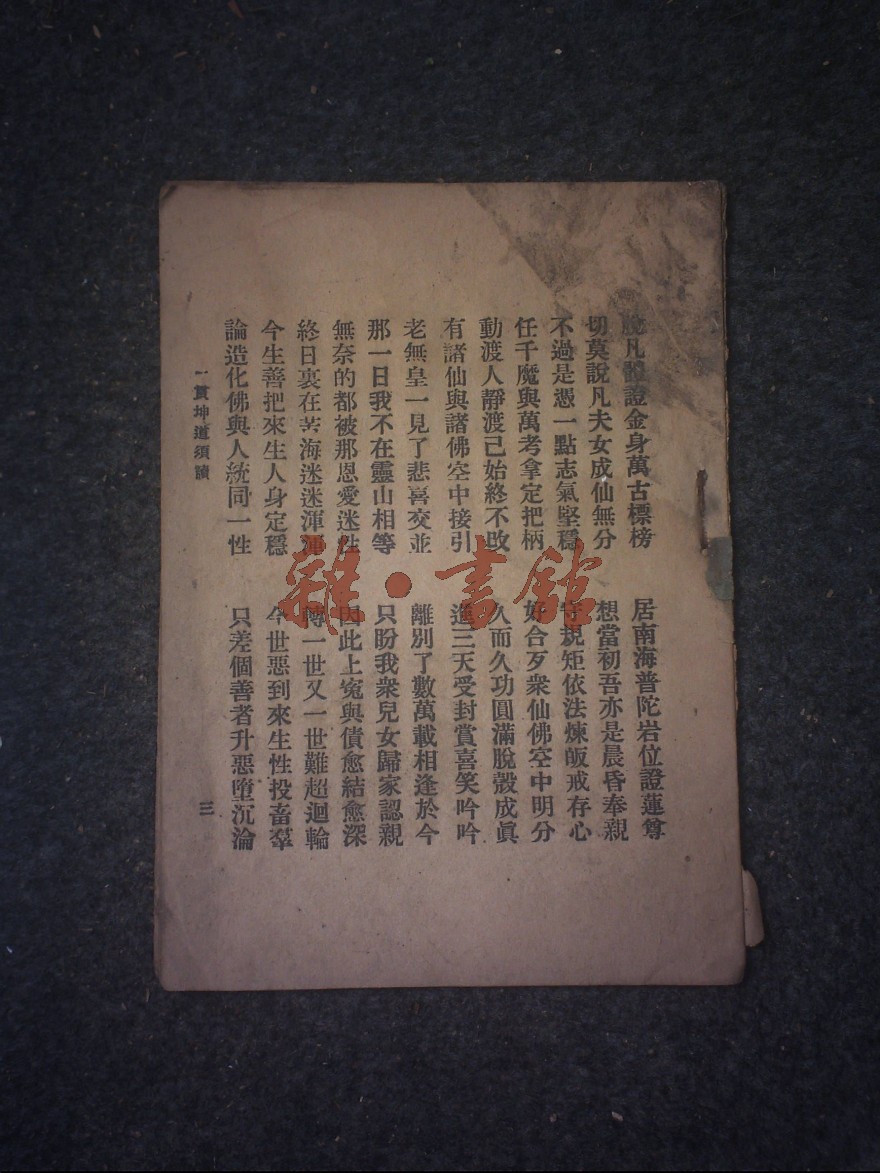 脫凡體證金身萬古標榜　居南海普陀岩位證蓮尊
切莫說凡夫女成仙無分　想當初吾亦是晨昏奉親
不過是憑一點志氣堅穩　守規矩依法煉皈戒存心
任千魔與萬考拿定把柄　好合歹衆仙佛空中明分
動渡人靜渡己始終不改　久而久功圓滿脫殼成眞
有諸仙與諸佛空中接引　進三天受封賞喜笑吟吟
老無皇一見了悲喜交並　離別了數萬載相逢於今
那一日我不在靈山相等　只盼我衆兒女歸家認親
無奈的都被那恩愛迷性　因此上冤與債愈結愈深
終日裏在苦海迷迷渾渾　轉一世又一世難超迴輪
今生善把來生人身定穩　今世惡到來生性投畜羣
論造化佛與人統同一性　只差個善者升惡墮沉淪
一貫坤道須讀　三
雜·書館